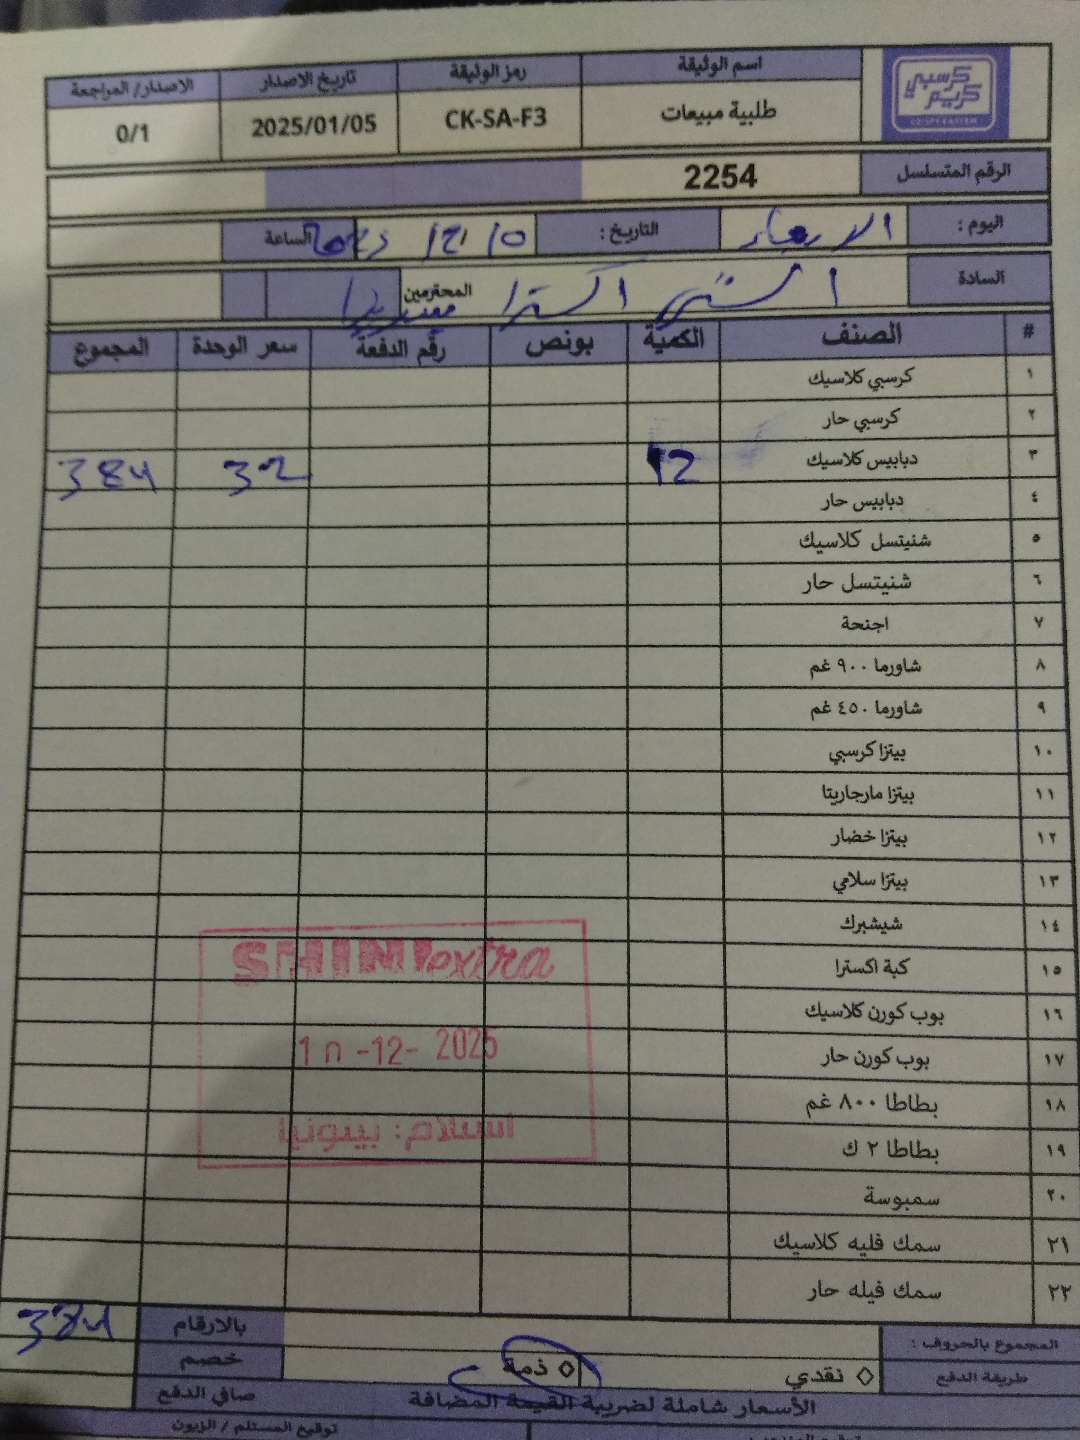 كرسبي كريم
CRISPY KREEM
اسم الوثيقة رمز الوثيقة تاريخ الاصدار الاصدار/ المراجعة
طلبية مبيعات CK-SA-F3 2025/01/05 0/1
الرقم المتسلسل 2254
اليوم : الاربعاء التاريخ : 10/12/2025 الساعة
السادة الشني اكسترا المحترمين
# الصنف الكمية بونص رقم الدفعة سعر الوحدة المجموع
١ كرسبي كلاسيك
٢ كرسبي حار
٣ دبابيس كلاسيك 12 32 384
٤ دبابيس حار
٥ شنيتسل كلاسيك
٦ شنيتسل حار
٧ اجنحة
٨ شاورما ٩٠٠ غم
٩ شاورما ٤٥٠ غم
١٠ بيتزا كرسبي
١١ بيتزا مارجاريتا
١٢ بيتزا خضار
١٣ بيتزا سلامي
١٤ شيشبرك
١٥ كبة اكسترا
١٦ بوب كورن كلاسيك
١٧ بوب كورن حار
١٨ بطاطا ٨٠٠ غم
١٩ بطاطا ٢ ك
٢٠ سمبوسة
٢١ سمك فليه كلاسيك
٢٢ سمك فيله حار
SHINI extra
10 -12- 2025
استلام: بيتونيا
المجموع بالحروف : بالارقام 384
طريقة الدفع ◊ نقدي ◊ ذمة خصم
الأسعار شاملة لضريبة القيمة المضافة صافي الدفع
توقيع المستلم / الزبون